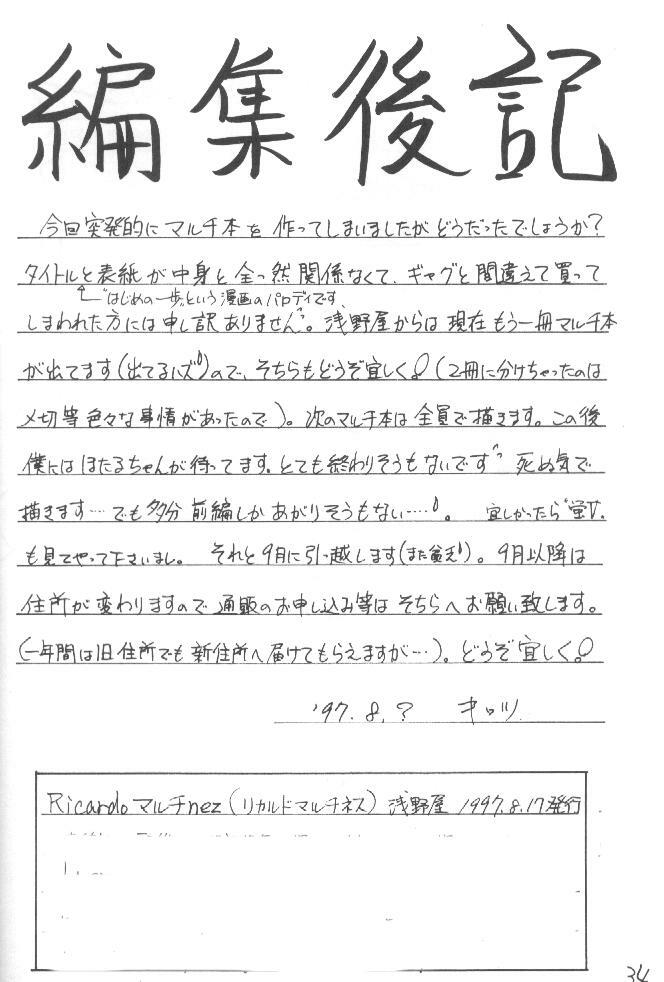 編集後記
今回突発的にマルチ本を作ってしまいましたがどうだったでしょうか?
タイトルと表紙が中身と全っ然関係なくて、ギャグと間違えて買って
"はじめの一歩"という漫画のパロディです、
しまわれた方には申し訳ありません。浅野屋からは現在もう一冊マルチ本
が出てます(出てるハズ)ので、そちらもどうぞ宜しく!(2冊に分けちゃったのは
〆切等色々な事情があったので)。次のマルチ本は全員で描きます。この後
僕にはほたるちゃんが待ってます。とても終わりそうもないです 死ぬ気で
描きます…でも多分前編しかあがりそうもない……。 宜しかったら"蛍Ⅴ"
も見てやって下さいまし。 それと9月に引っ越します(また貧乏)。9月以降は
住所が変わりますので通販のお申し込み等はそちらへお願い致します。
(一年間は旧住所でも新住所へ届けてもらえますが…)。どうぞ宜しく。
'97.8.? キロツ
Ricardoマルチnez(リカルドマルチネス) 浅野屋 1997.8.17発行
34